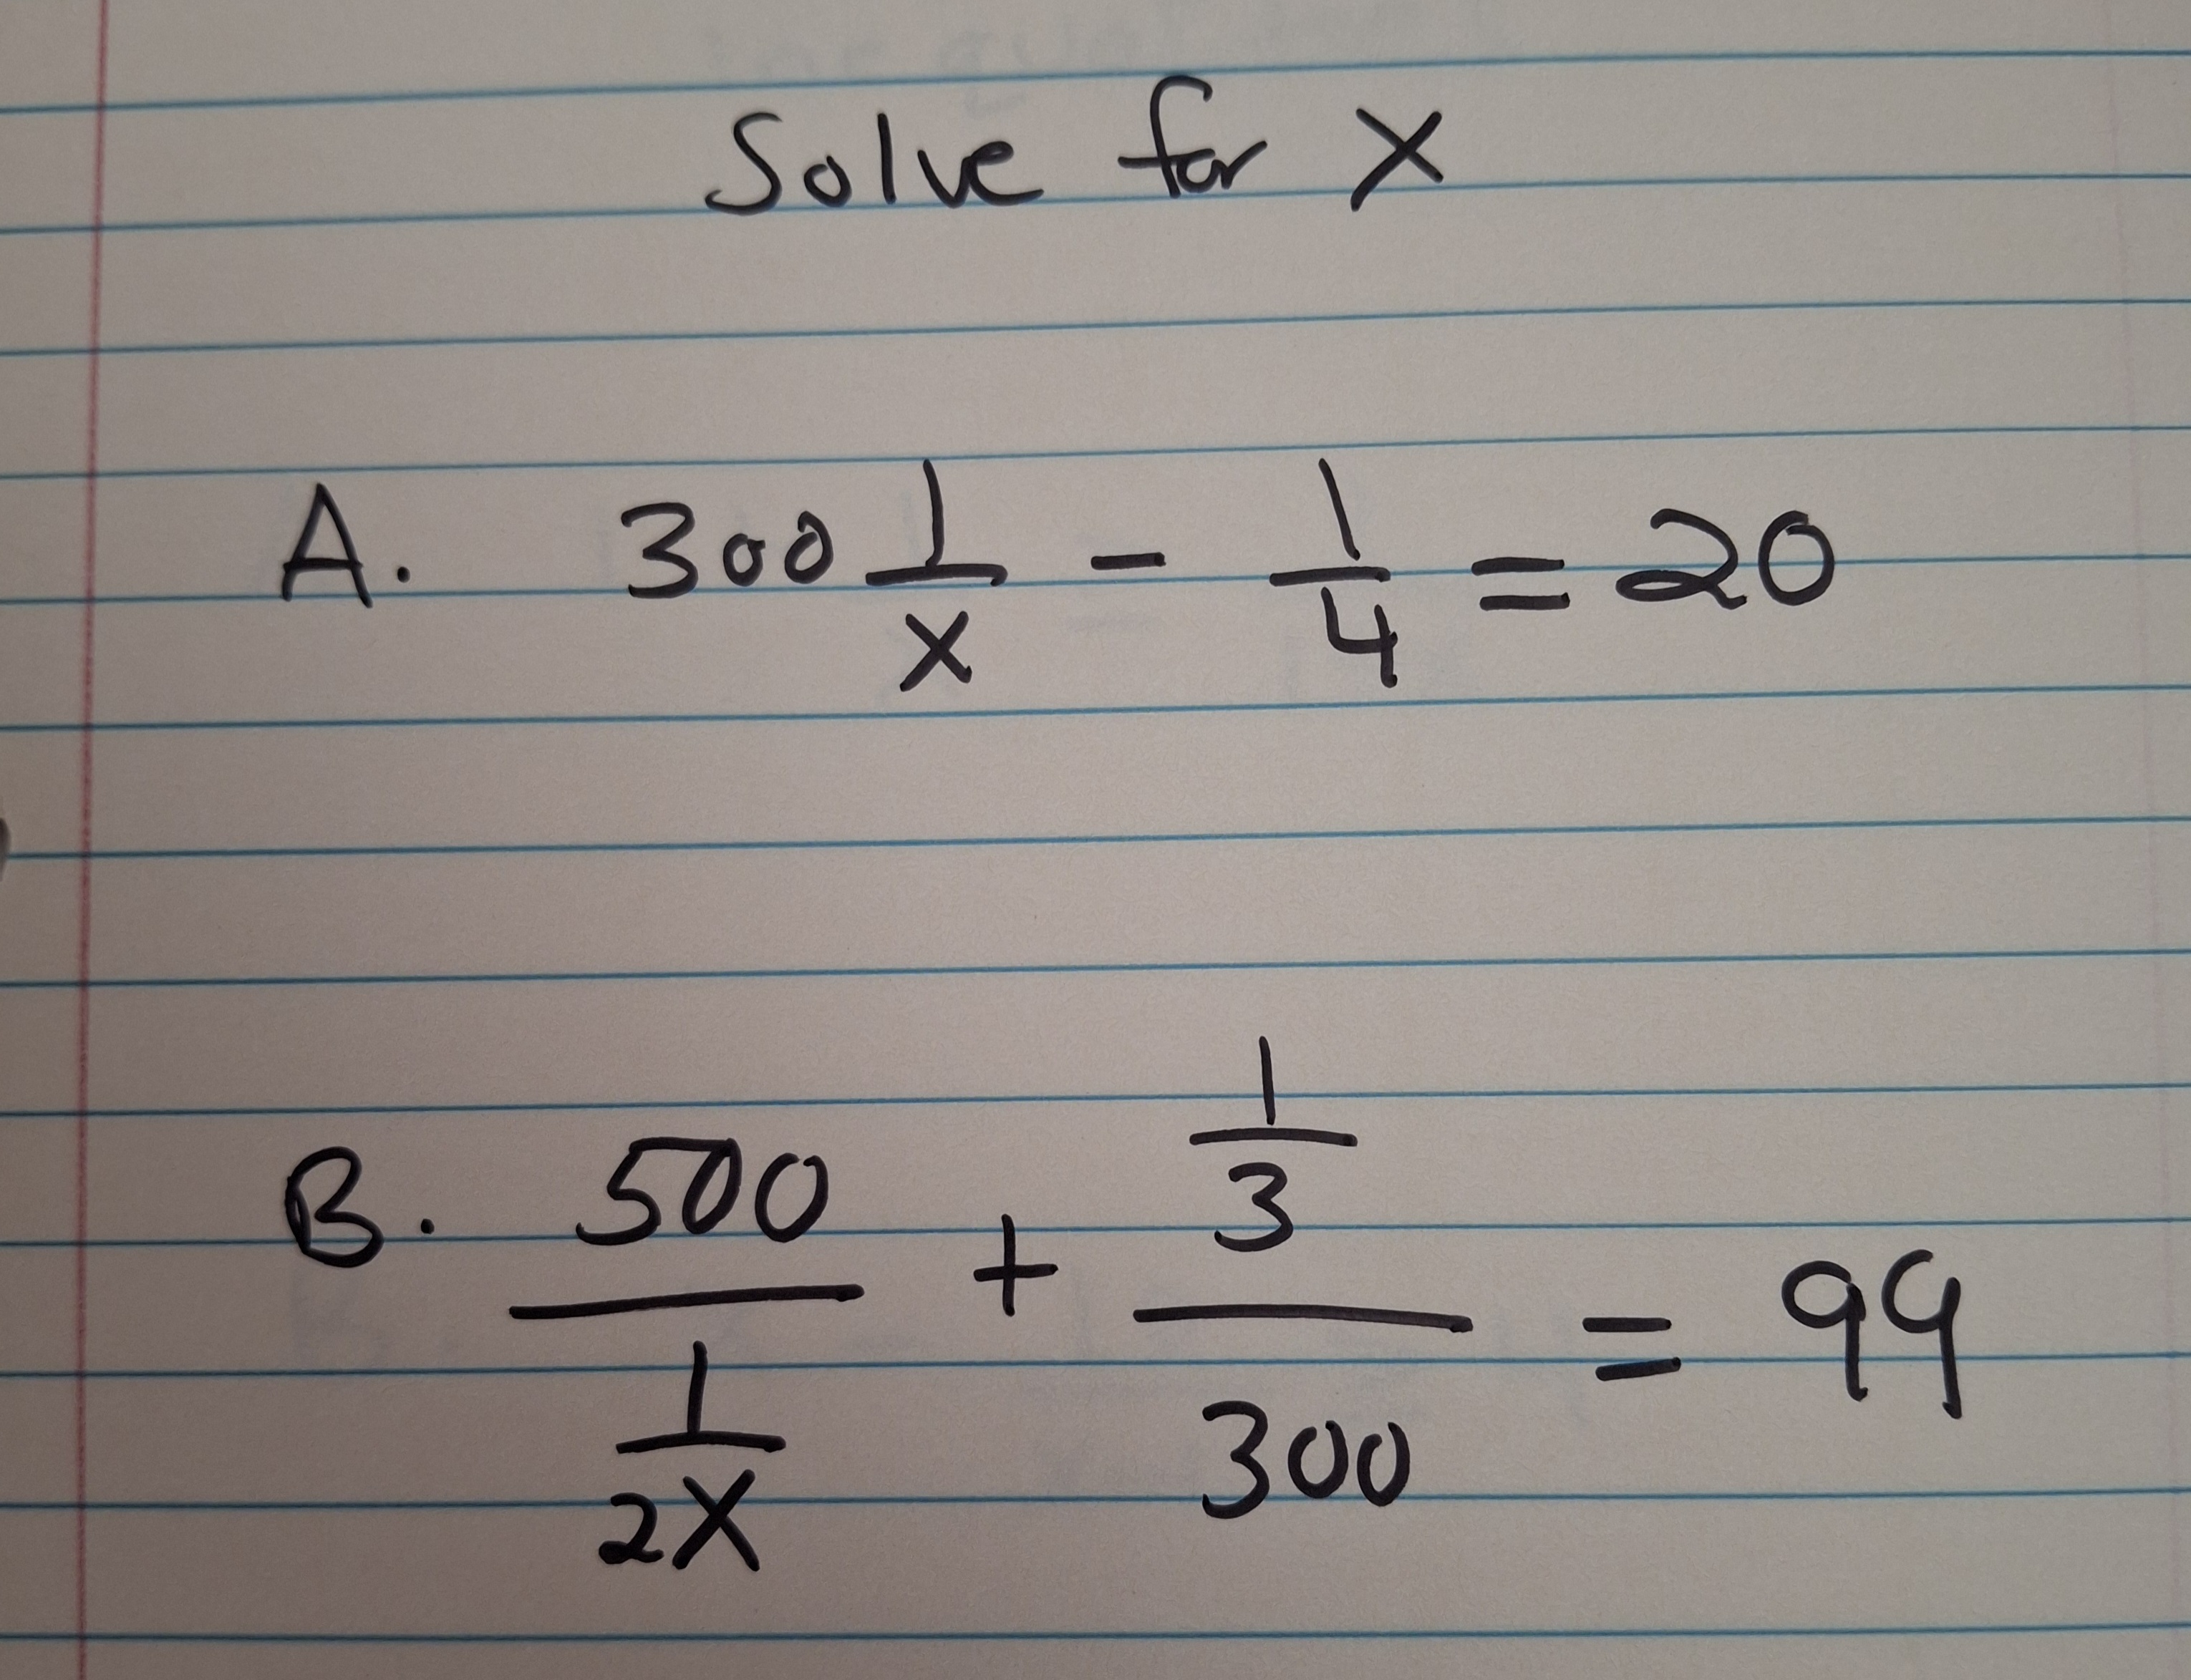 Solve for X
A. 300 1/x - 1/4 = 20
B. 500/(1/2X) + (1/3)/300 = 99